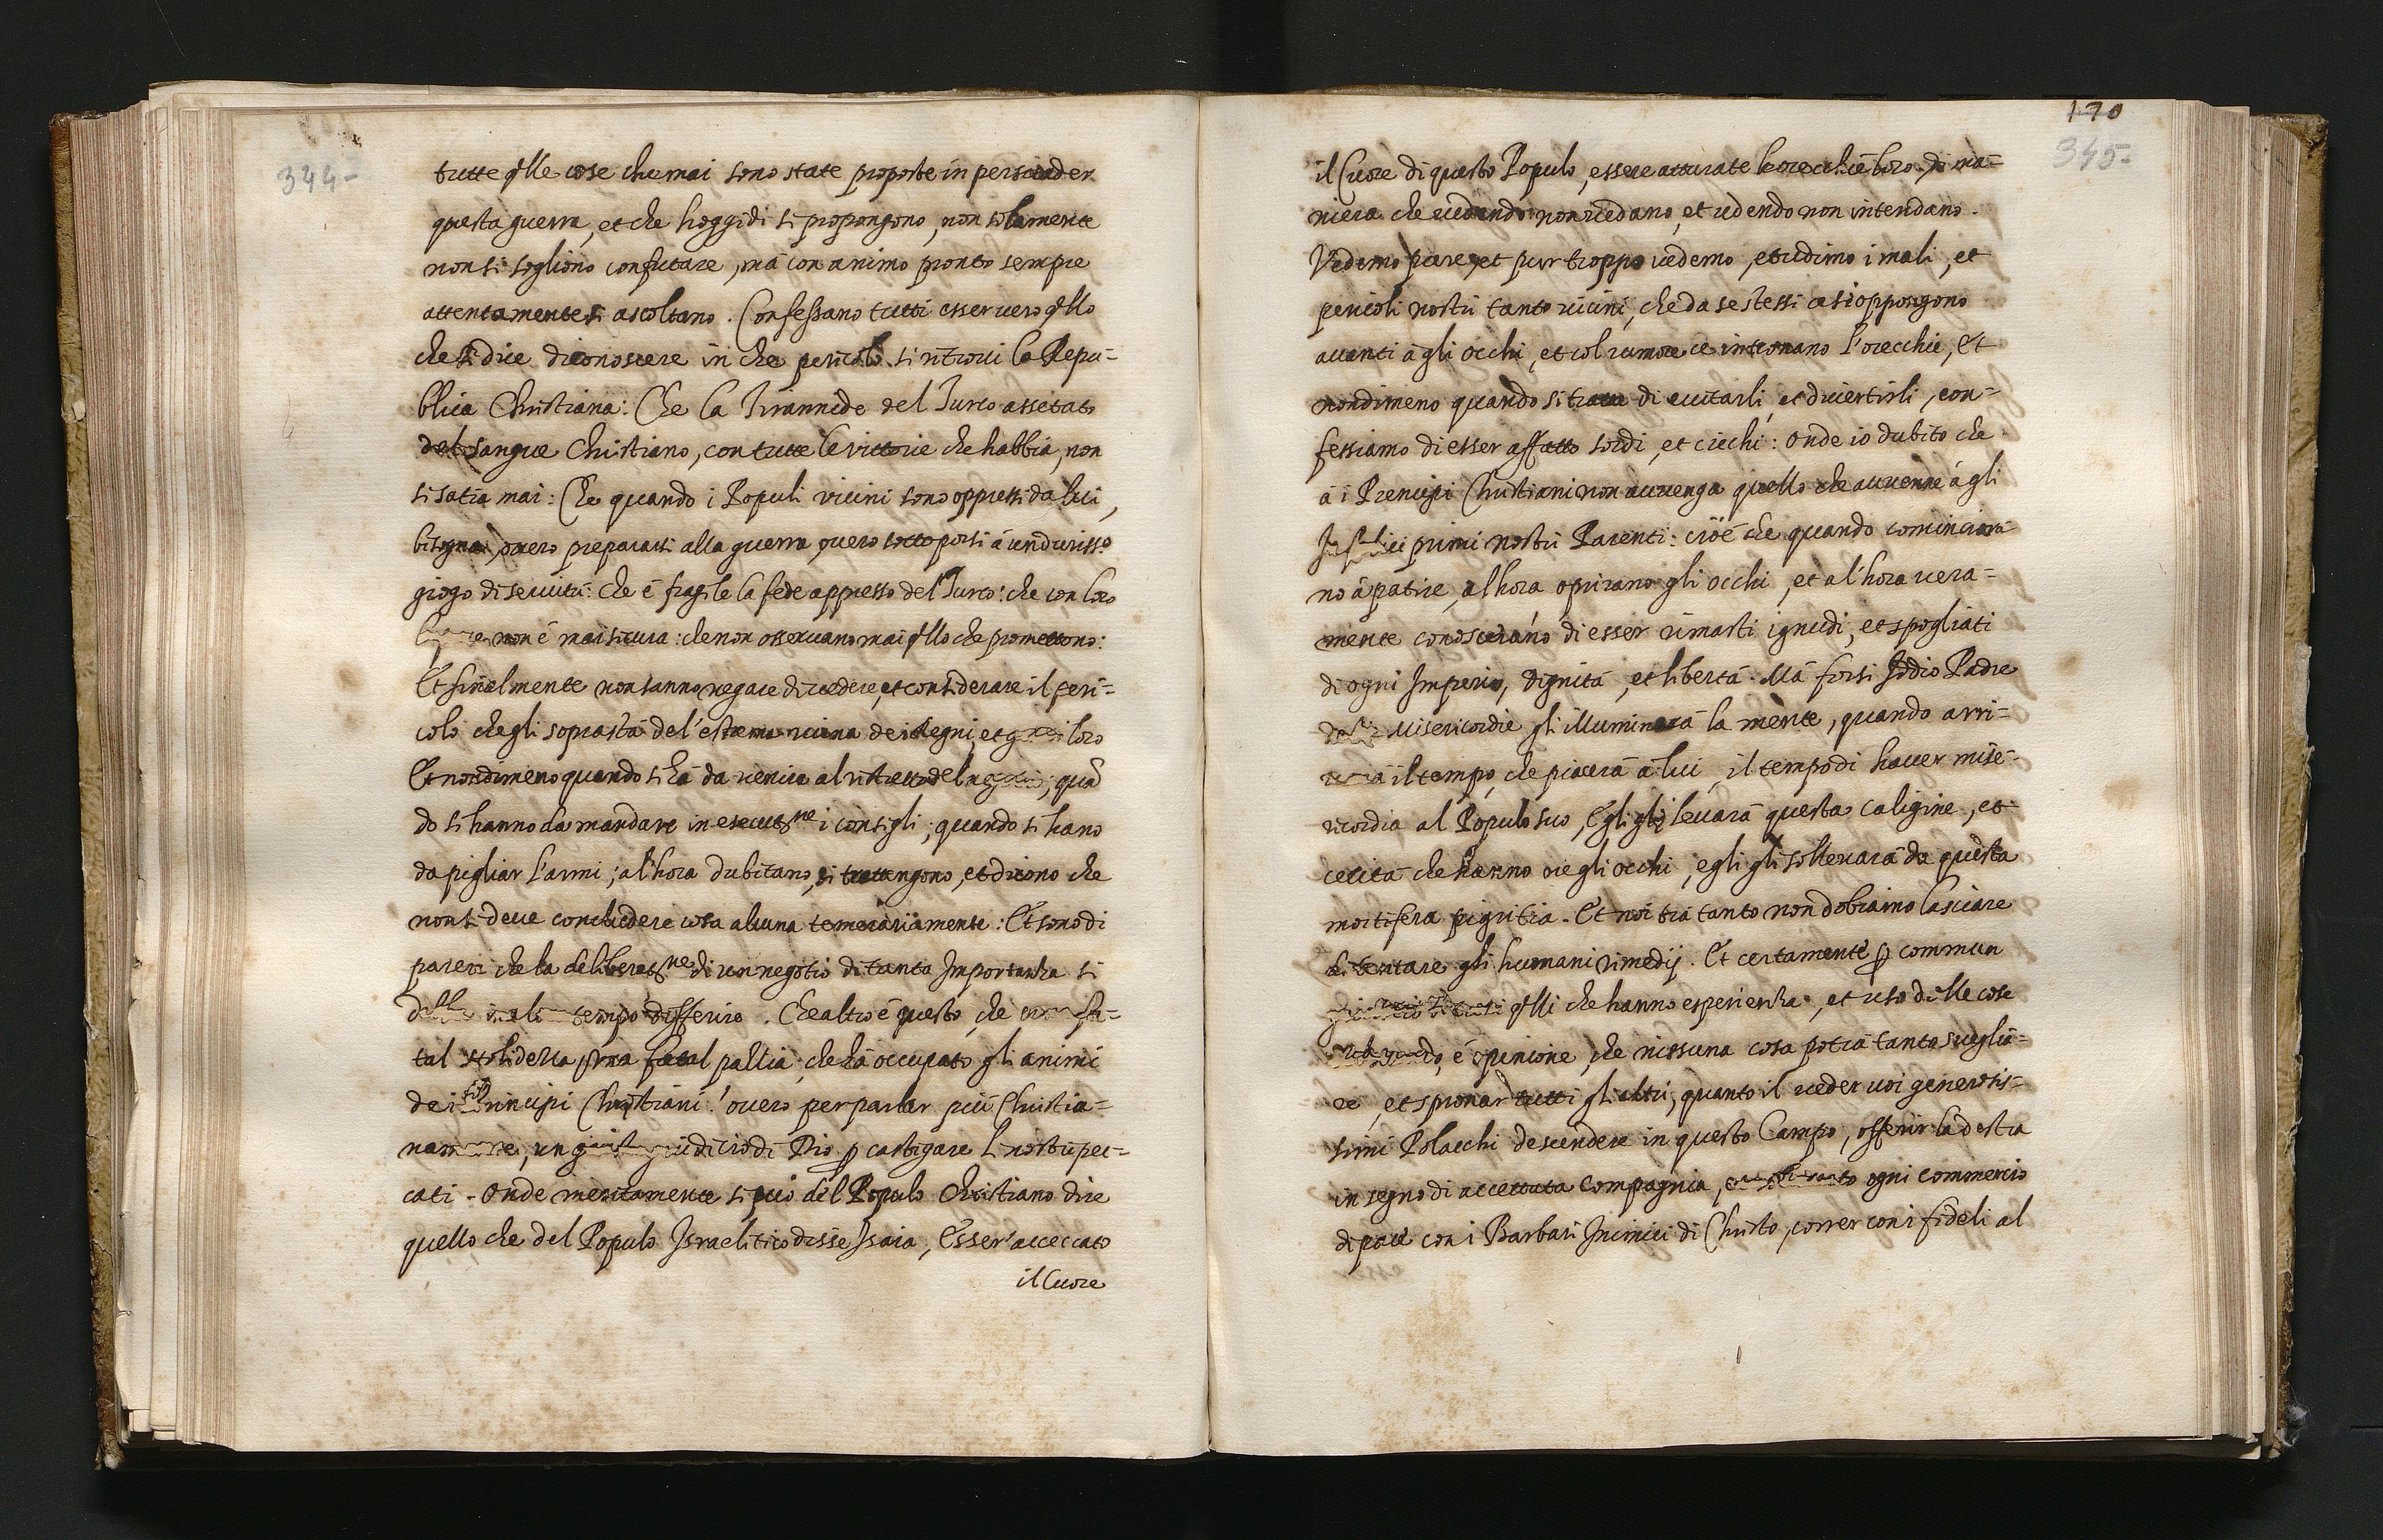 344-
tutte q̃lle cose che mai sono state proposte in persuader
questa guerra, et che hoggidi si propongono, non solamente
non si sogliono confutare, mà con animo pronto sempre
attentamente si ascoltano. Confessano tutti esser uero q̃llo
che si dice di conoscere in che pericolo si ritroui la Repu=
blica Christiana: Che la Tirannide del Turco assetato
del sangue Christiano, con tutte le vittorie che habbia, non
si satia mai: Che quando i Populi vicini sono oppressi da lui,
bisogna ouero prepararsi alla guerra ouero sottoporsi à un duriss.o
giogo di seruitù: che è fragile la fede appresso del Turco: che con loro
non è mai sicura: che non osseruano mai q̃llo che promettono:
Et finalmente non sanno negare di uedere, et considerare il peri=
colo che gli soprastà del'estrema ruina dei Regni, et loro
Et nondimeno quando si hà da uenire al ristretto del negotio; quã
do si hanno da mandare in esecut.ne i consigli; quando si hano
da pigliar l'armi; al'hora dubitano, si trattengono, et dicono che
non si deue concludere cosa alcuna temerariamente: Et sono di
parere che la deliberat.ne di un negotio di tanta Importanza si
tempo differire. Che altro è questo, che fa=
tal stolidezza, una fatal pazzia, che hà occupato gli animi
dei Principi Christiani! ouero per parlar più Christia=
namente, un giuditio di Dio p castigare li nostri pec=
cati. Onde meritamente si può del Populo Christiano dire
quello che del Populo Israelitico disse Isaia, Esser' acceccato
il Cuore
170
345-
il Cuore di questo Populo, essere atturate le orecchie loro di ma=
niera che uedendo non uedano, et udendo non intendano.
Vedemo pure, et pur troppo uedemo, et udimo i mali, et
pericoli nostri tanto uicini, che da se stessi ci si oppongono
auanti à gli occhi, et col rumore ce intronano l'orecchie, Et
nondimeno quando si tratta di euitarli, et diuertirli, con=
fessiamo di esser affatto sordi, et ciechi: onde io dubito che
à i Prencipi Christiani non auuenga quello che auuenne à gli
Infelici primi nostri Parenti: cioè che quando cominciora=
no à patire, al'hora aprirano gli occhi, et al'hora uera=
mente conoscerano di esser rimasti ignudi, et spogliati
di ogni Imperio, dignità, et libertà. Mà forsi Iddio Padre
delle Misericordie gli illuminarà la mente, quando arri=
uarà il tempo, che piacerà à lui, il tempo di hauer mise=
ricordia al Populo suo, Egli gli leuarà questa caligine, et
cecità che hanno ne gli occhi, egli gli solleuarà da questa
mortifera pigritia. Et noi tra tanto non dobiamo lasciare
di tentare gli humani rimedij. Et certamente p commun
giuditio di tutti q̃lli che hanno esperienza, et uso delle cose
del mondo, è opinione, che nissuna cosa potrà tanto suegliá=
re, et spronar tutti gli altri, quanto il ueder uoi generosis=
simi Polacchi descendere in questo Campo, offerir la destra
in segno di accettata Compagnia, ogni commercio
di pace con i Barbari Inimici di Christo, correr con i fideli al